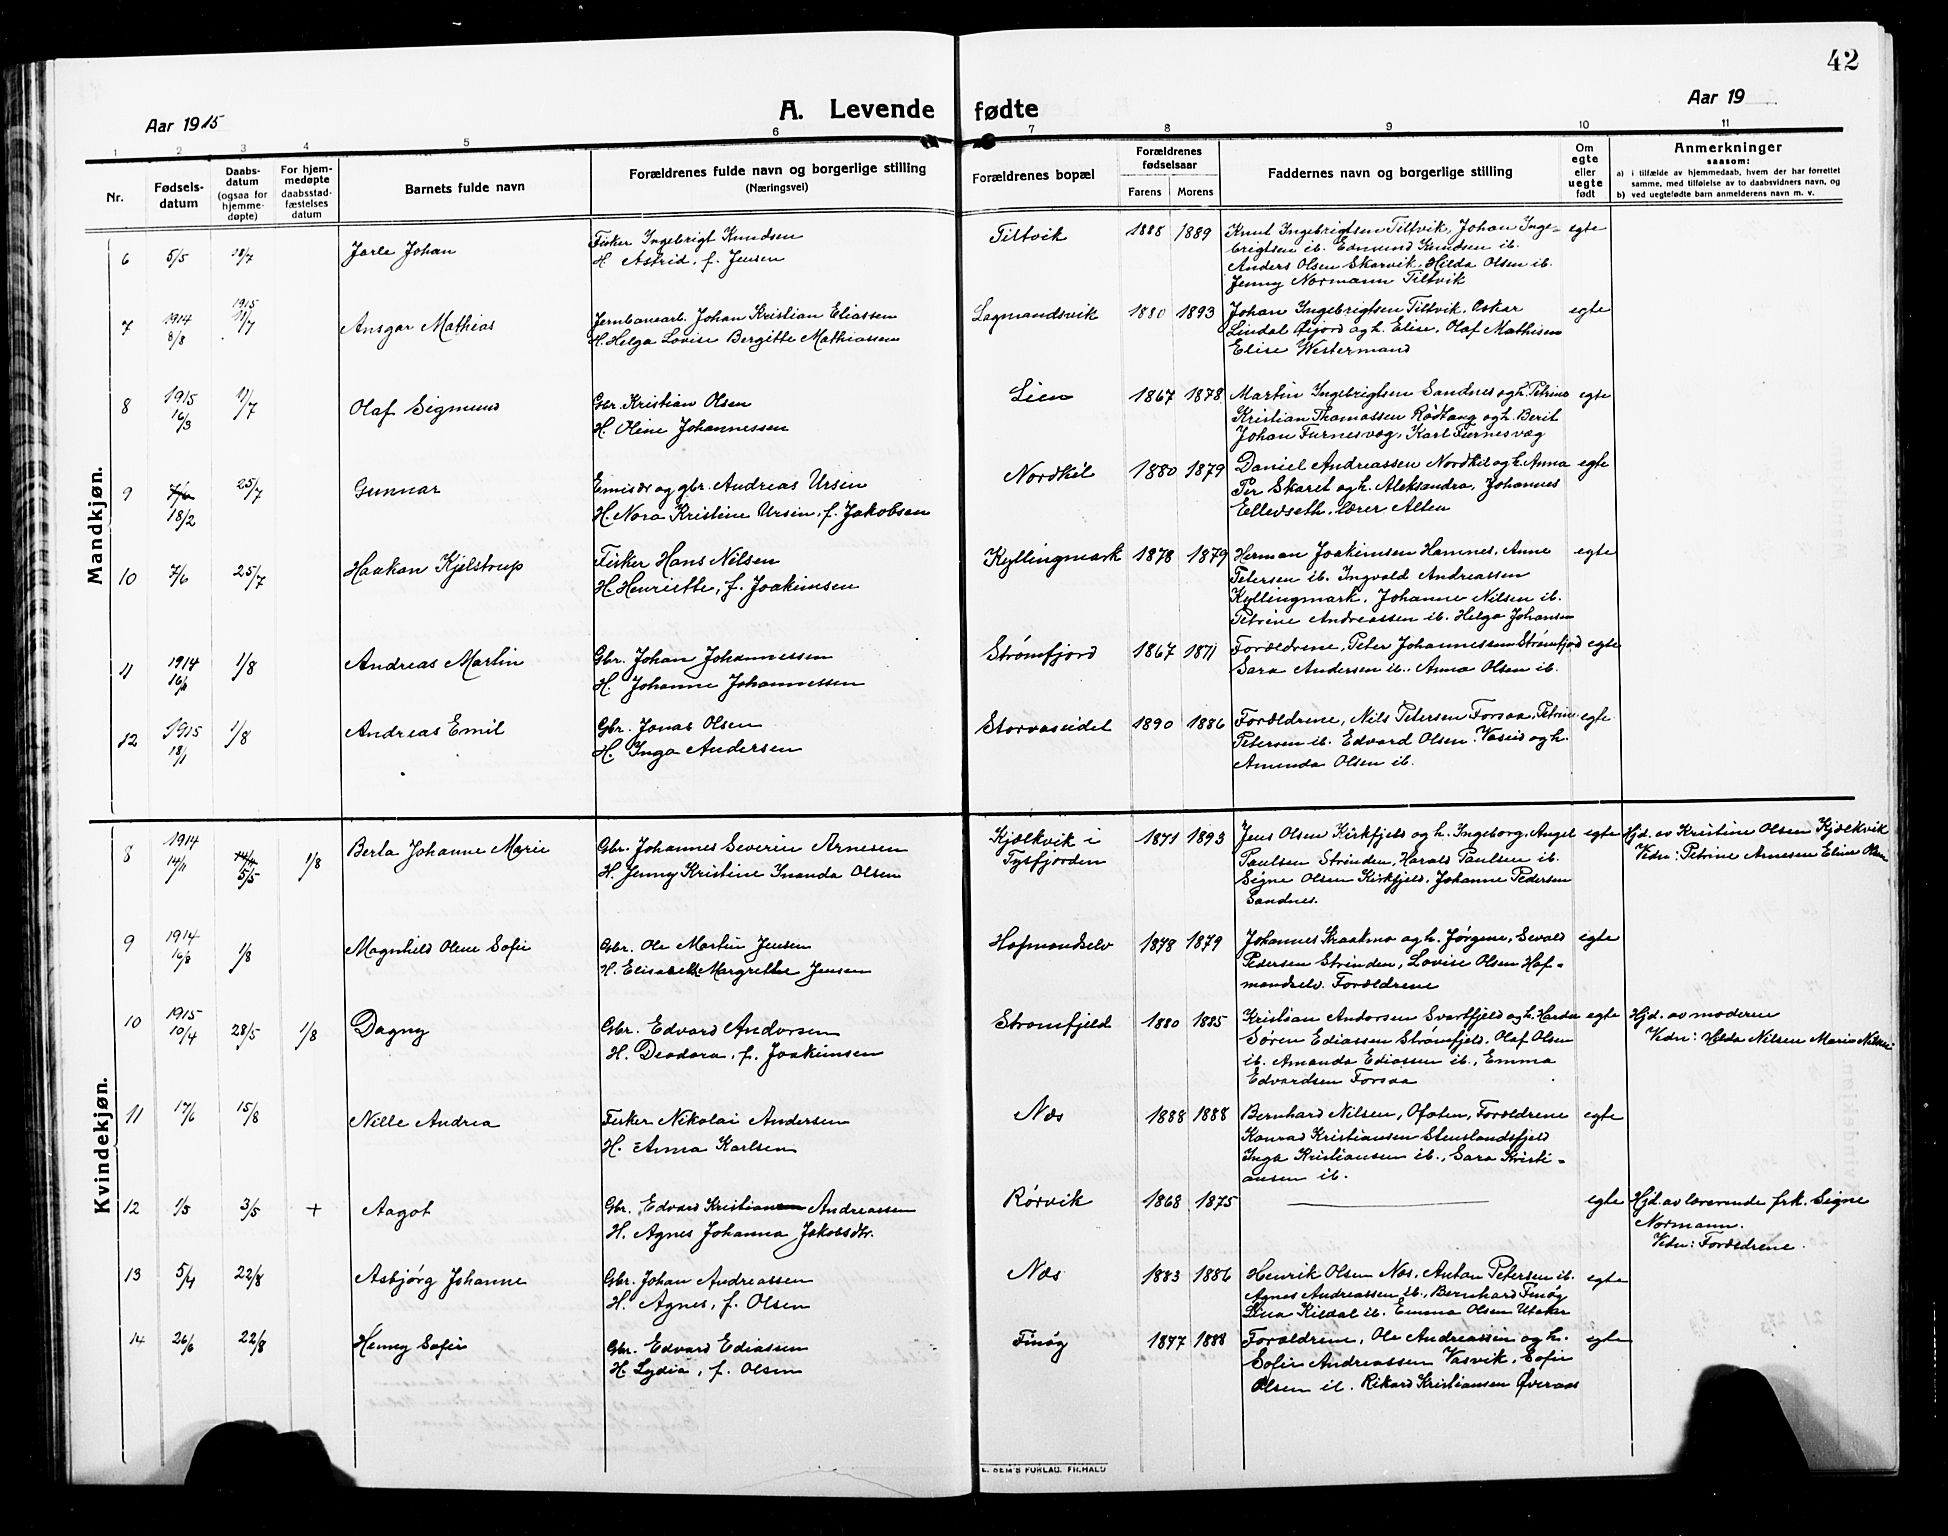 42
Aar 1915
A. Levende fødte
Aar 19
1 2 3 4 5 6 7 8 9 10 11
Nr.
Fødsels-
datum
Daabs-
datum
(ogsaa for
hjemme-
døpte)
For hjem-
medøpte
daabsstad-
fæstelses
datum
Barnets fulde navn
Forældrenes fulde navn og borgerlige stilling
(Næringsvei)
Forældrenes bopæl
Forældrenes
fødselsaar
Farens Morens
Faddernes navn og borgerlige stilling
Om
egte
eller
uegte
født
Anmerkninger
saasom:
a) i tilfælde av hjemmedaab, hvem der har forrettet
samme, med tilføielse av to daabsvidners navn, og
b) ved uegtefødte barn anmelderens navn m. v.
Mandkjøn.
6 5/5 Jarle Johan Fisker Ingebrigt Knudsen Tiltvik 1888 1889 Knut Ingebrigtsen Tiltvik, Johan Inge- egte
H. Astrid, f. Jensen brigtsen ib. Edmund Knudsen ib.
Anders Olsen Skarvik. Hilda Olsen ib.
Jenny Normann Tiltvik
7 1914 8/8 1915 11/7 Ansgar Mathias Jernbanearb. Johan Kristian Eliassen Lagmandsvik 1880 1893 Johan Ingebrigtsen Tiltvik, Oskar egte
H. Helga Lovise Bergitte Mathiassen Lindal og h. Elise, Olaf Mathisen
Elise Westermand
8 1915 16/3 11/7 Olaf Sigmund Gbr. Kristian Olsen Lien 1867 1878 Martin Ingebrigtsen Sandnes og h. Petrine egte
H. Oline Johannessen Kristian Thomassen Rødtang og h. Berit
Johan Furnesvæg, Karl Furnesvæg
9 18/2 25/7 Gunnar Emisær og gbr. Andreas Ursin Nordkil 1880 1879 Daniel Andreassen Nordkil og h. Anna egte
H. Nora Kristine Ursin, f. Jakobsen Per Skaret og h. Aleksandra, Johannes
Ellevseth, lærer Alten
10 7/6 25/7 Haakon Kjelstrup Fisker Hans Nilsen Kyllingmark 1878 1879 Herman Joakimsen Hamnes, Anne egte
H. Henriette, f. Joakimsen Petersen ib. Ingvald Andreassen
Kyllingmark, Johanne Nilsen ib.
Petrine Andreassen ib. Helga Johansen
11 1914 1/8 Andreas Martin Gbr. Johan Johannessen Strømfjord 1867 1871 Forældrene, Peter Johannessen Strømfjord egte
H. Johanne Johannessen Sara Andersen ib. Anna Olsen ib.
12 1915 18/1 1/8 Andreas Emil Gbr. Jonas Olsen Storvaseidet 1890 1886 Forældrene, Nils Petersen Forsaa, Petrine egte
H. Inga Andersen Petersen ib. Edvard Olsen Vaseid og h.
Amanda Olsen ib.
Kvindekjøn.
8 1914 14/11 5/5 1/8 Berta Johanne Marie Gbr. Johannes Severin Arnesen Kjølkvik i 1871 1893 Jens Olsen Kirkfjeld og h. Ingeborg, Angel egte Hjd. av Kristine Olsen Kjølkvik
H. Jenny Kristine Inanda Olsen Tysfjorden Paulsen Strinden, Harald Paulsen ib. Vidn: Petrine Arnesen Eline Olsen
Signe Olsen Kirkfjeld, Johanne Pedersen
Sandnes.
9 1914 16/8 1/8 Magnhild Oline Sofie Gbr. Ole Martin Jensen Hofmandselv 1878 1879 Johannes Kraakmo og h. Jørgine, Sevald egte
H. Elisabeth Margrethe Jensen Pedersen Strinden, Lovise Olsen Hof-
mandselv. Forældrene
10 1915 10/4 28/5 1/8 Dagny Gbr. Edvard Andorsen Strømfjeld 1880 1885 Kristian Andorsen Svartfjeld og h. Harda egte Hjd. av moderen
H. Deodora, f. Joakimsen Søren Ediassen Strømfjeld, Olaf Olsen Vidn: Hilda Nilsen Maria Nilsen
ib. Amanda Ediassen ib., Emma
Edvardsen Forsaa
11 17/6 15/8 Nille Andrea Fisker Nikolai Andersen Næs 1888 1888 Bernhard Nilsen, Ofoten, Forældrene egte
H. Anna Karlsen Konrad Kristiansen Stenslandsfjeld
Inga Kristiansen ib., Sara Kristi-
ansen ib.
12 1/5 3/5 + Aagot Gbr. Edvard Kristian Andreassen Rørvik 1868 1875 egte Hjd. av lærerinde frk. Signe
H. Agnes Johanna Jakobsdtr. Normann.
Vidn: Forældrene.
13 5/4 22/8 Asbjørg Johanne Gbr. Johan Andreassen Næs 1883 1886 Henrik Olsen Næs, Anton Petersen ib. egte
H. Agnes, f. Olsen Agnes Andreassen ib., Bernhard Finøy
Lina Kildal ib. Emma Olsen
14 26/6 22/8 Henny Sofie Gbr. Edvard Ediassen Finøy 1877 1888 Forældrene, Ole Andreassen og h. egte
H. Lydia, f. Olsen Sofie Andreassen Vasvik, Sofie
Olsen ib. Rikard Kristiansen Øveraas
E. SEM'S FORLAG. FR.HALD